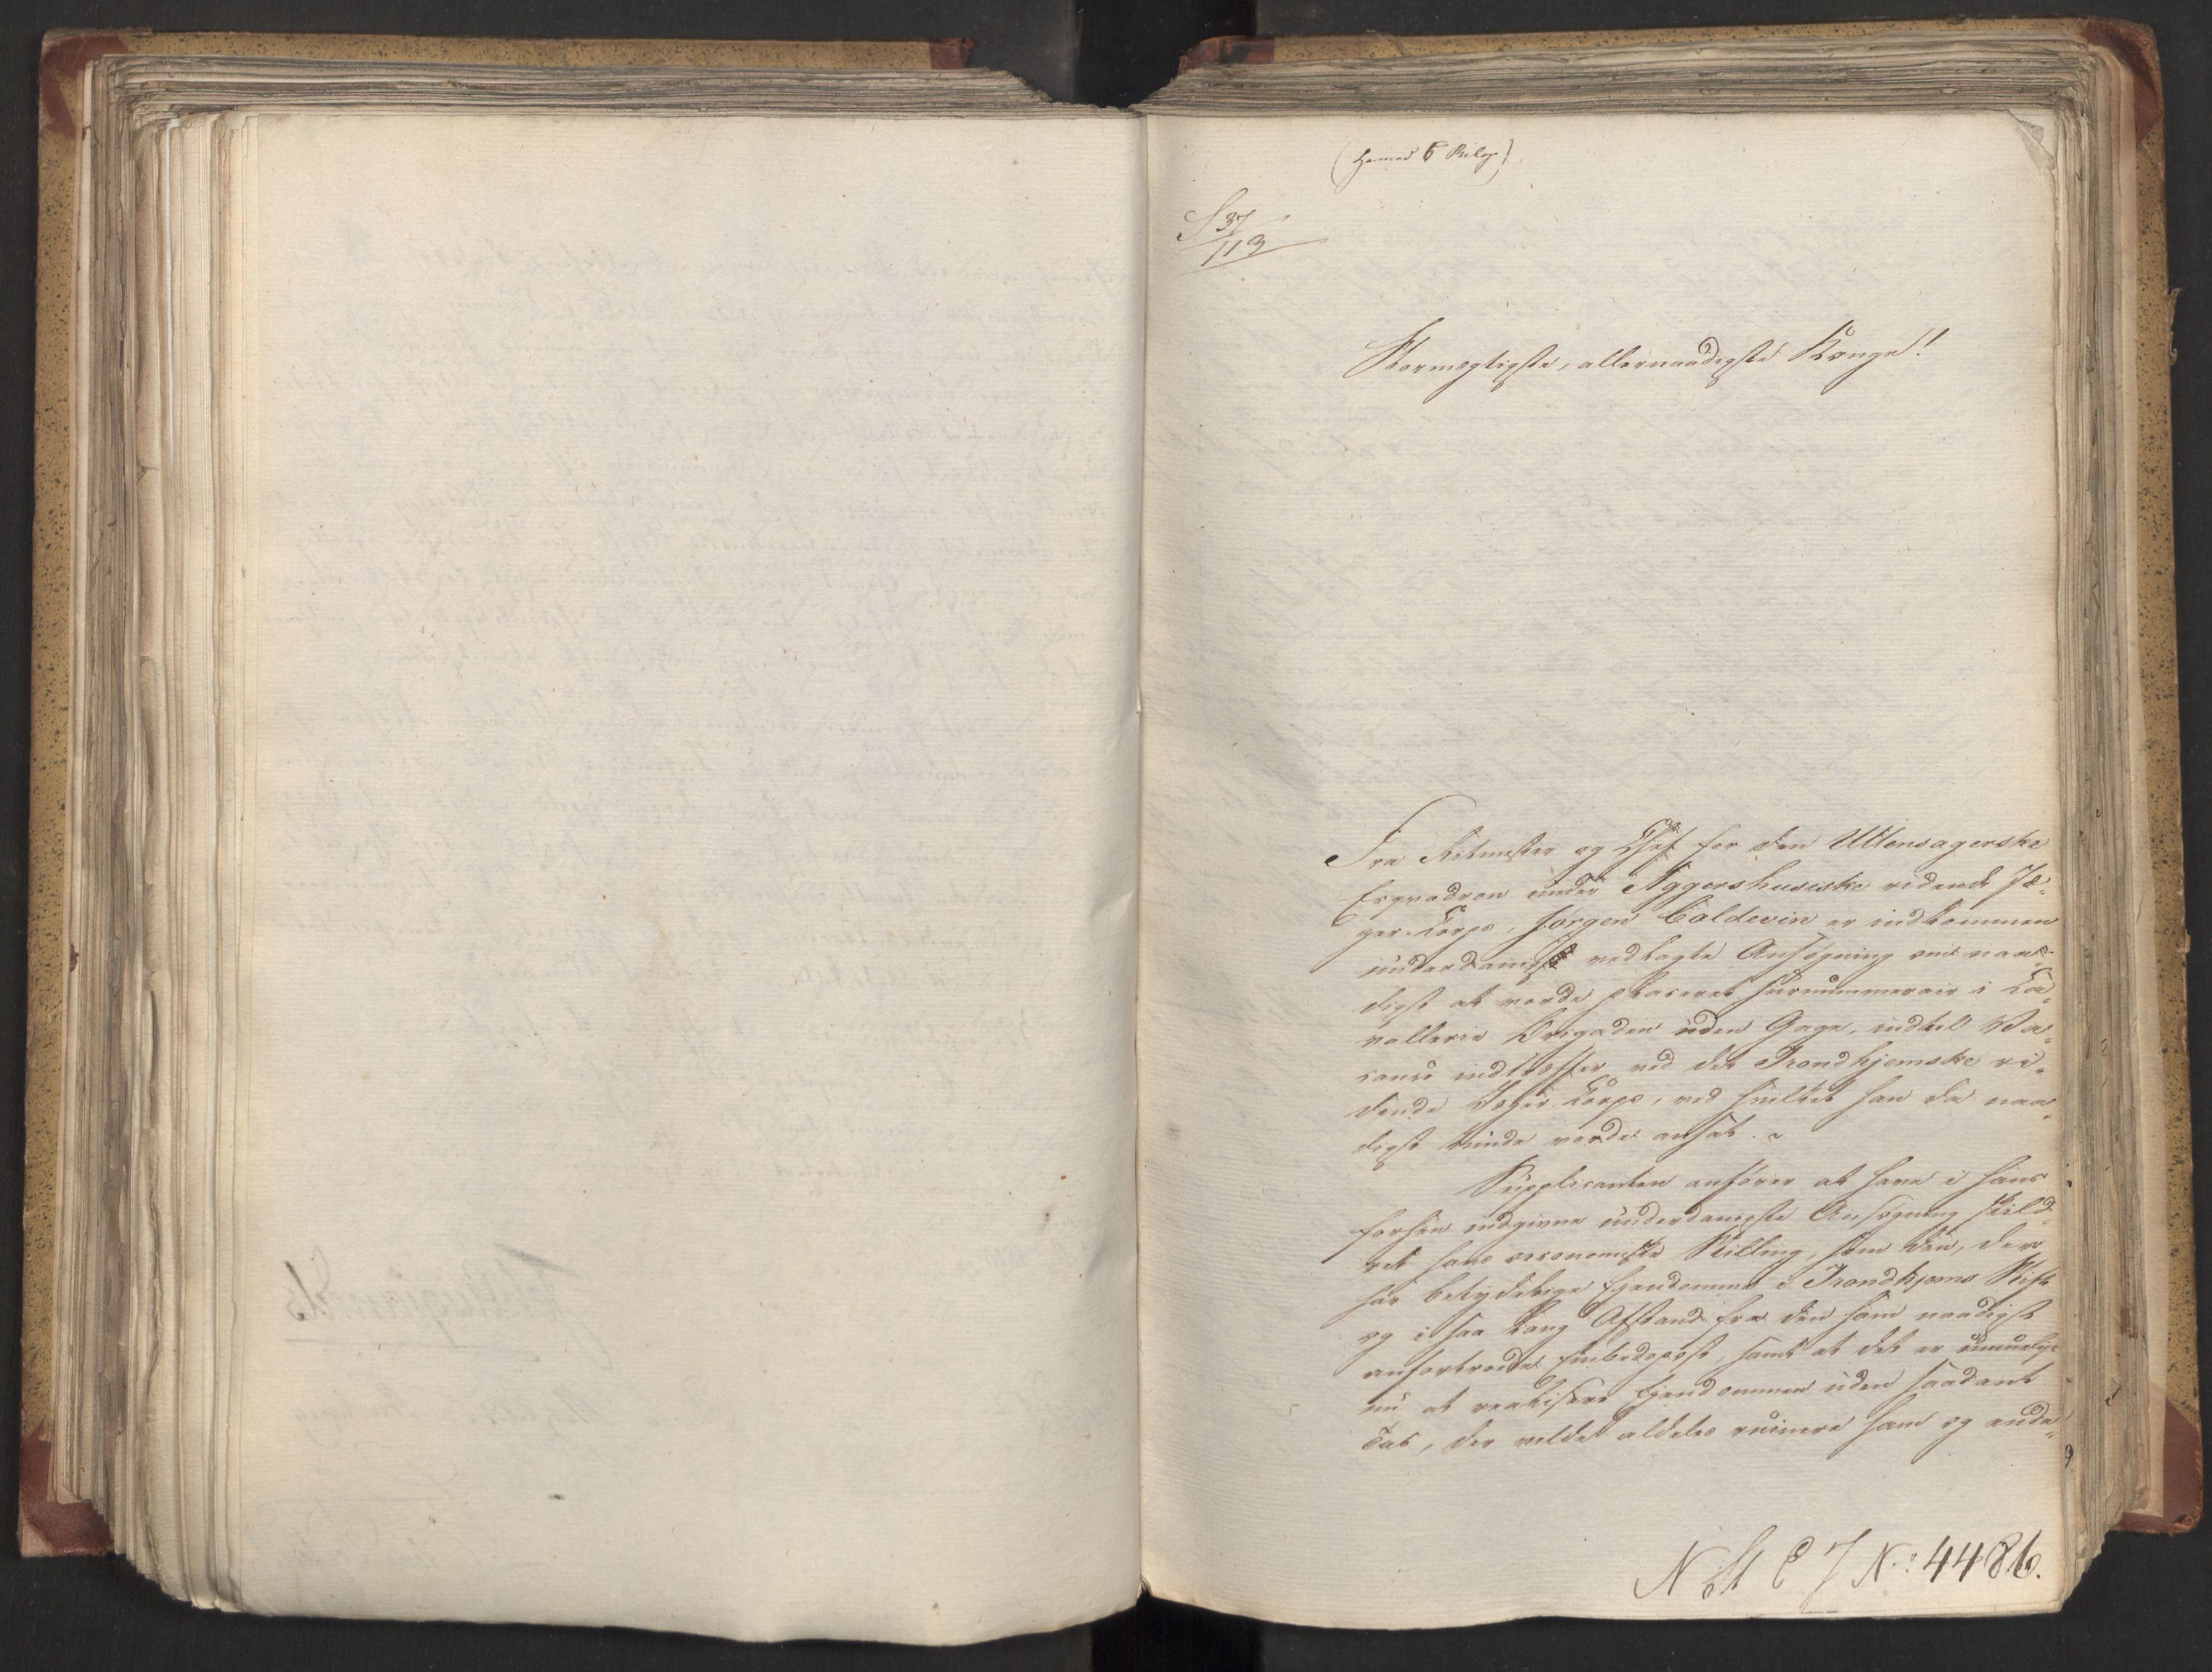 (Hermed 6 Bilag)
S 37
113
Stormægtigste, allernaadigste Konge!
Fra Ritmester og Chef for den Ullensagerske
Esqvadron under Aggershusiske ridende Jæ-
ger-Corps, Jørgen Coldevin er indkommen
underdanigst vedlagte Ansøgning om naa-
digst at vorde placeret surnummerair i Ca-
vallerie Brigaden uden Gage, indtil Va-
cance indtræffer ved det Trondhjemske ri-
dende Jæger-Corps, ved hvilket han da naa-
digst kunde vorde ansat.
Supplicanten anfører at have i hans
forhen indgivne underdanigste Ansøgning skild-
ret hans oeconomiske Stilling, som den, der
har betydelige Ejendomme i Trondhjems Stift
og i saa lang Afstand fra den ham naadigst
anfortroede Embedspost, samt at det er umueligt
nu at realisere Ejendommen uden saadant
Tab, der vilde aldeles ruinere ham og ende-
N St C J No: 4486.